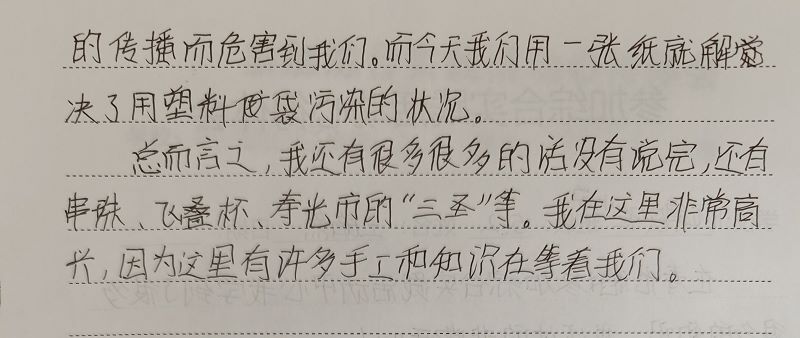 的传播而危害到我们。而今天我们用一张纸就解觉
决了用塑料皮袋污染的状况。
总而言之，我还有很多很多的话没有说完，还有
串珠、飞叠杯、寿光市的“三圣”等。我在这里非常高
兴，因为这里有许多手工和知识在等着我们。